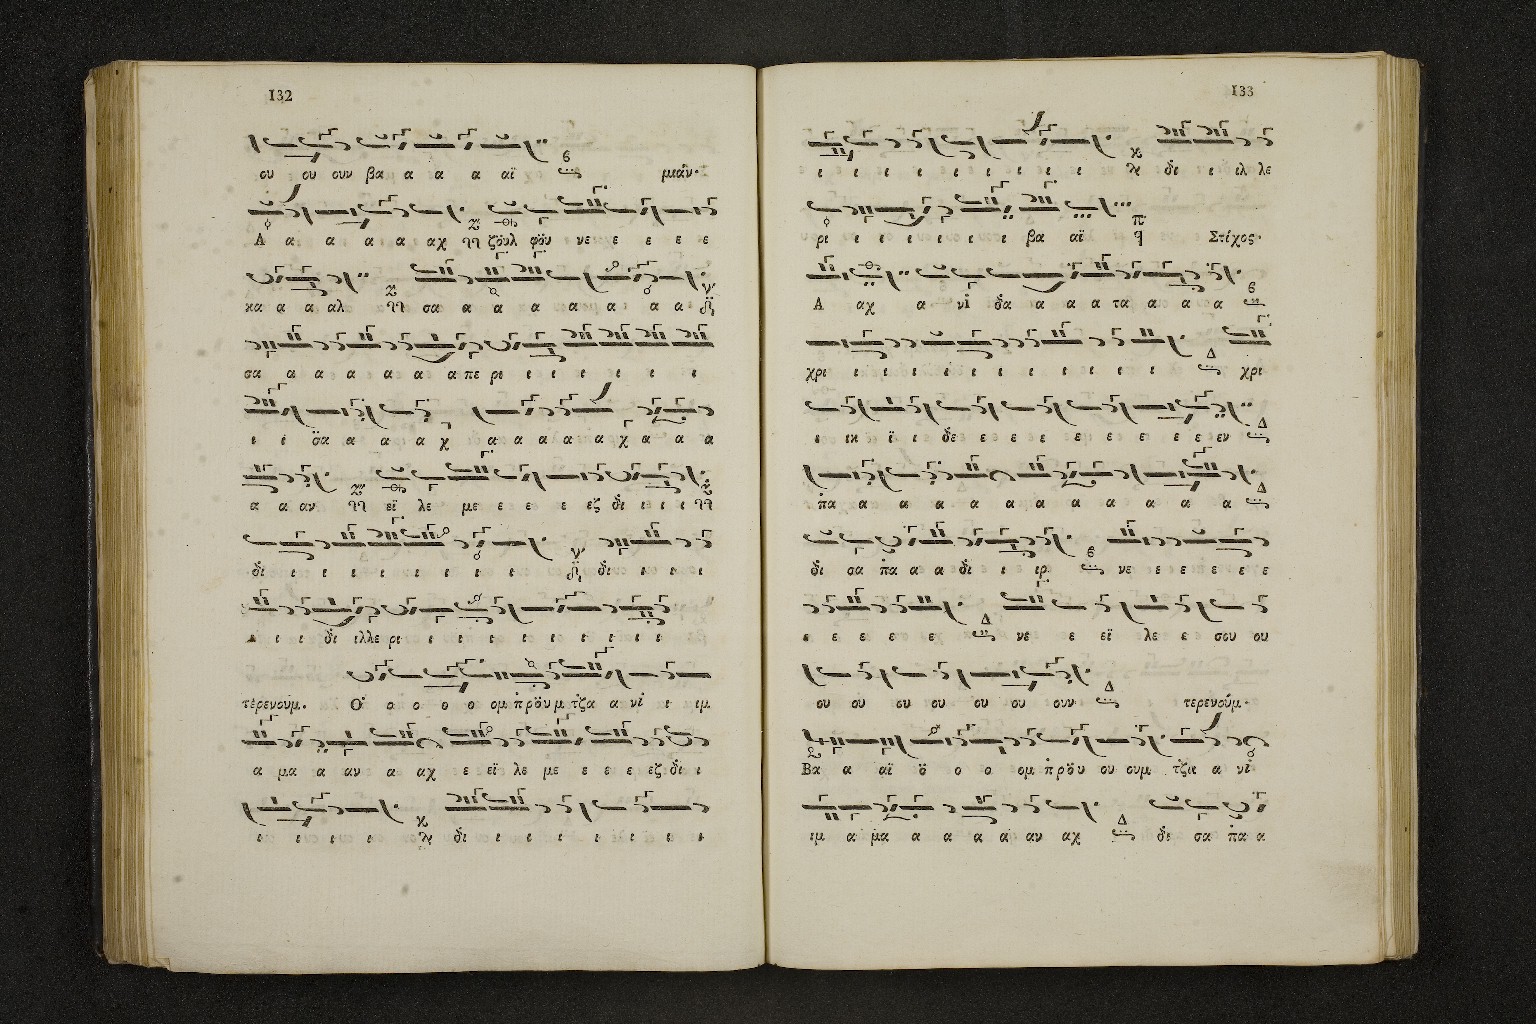 132
ου ου ουν βα α α α αϊ μιάν·
Α α α α α αχ ζουλ φου νε ε ε ε ε
κα α α αλ σα α α α α α α α
σα α α α α α α πε ρι ι ι ι ι ι ι
ι ι σα α α α χ α α α α α χ α α α
α α αν εϊ λε με ε ε ε εζ δι ι ι ι
δι ι ι ι ι ι ι ι ι δι ι ι ι
ι ι ι δι ιλλε ρι ι ι ι ι ι ι ι ι ι ι
τερενουμ. Ο ο ο ο ο ομ πρου μ τζα α νι ι ιμ
α μα α αν α αχ ε εϊ λε με ε ε ε εζ δι ι
ι ι ι ι ι δι ι ι ι ι ι ι ι
133
ι ι ι ι ι ι ι ι ι δι ι ιλ λε
ρι ι ι ι ι ι ι βα αϊ Στίχος·
Α αχ α νι δα α α α τα α α α α
χρι ι ι ι ι ι ι ι ι ι ι χρι
ι ικ ϊ ι δε ε ε ε ε ε ε ε ε ε εν
πα α α α α α α α α α α α
δι σα πα α α δι ι ιρ νε ε ε ε ε ε
ε ε ε ε ε νε ε εϊ λε ε σου ου
ου ου ου ου ου ου ουν τερενούμ·
Βα α αϊ ο ο ο ομ πρου ου ουμ τζα α νι
ιμ α μα α α α α αν αχ δε σα πα α